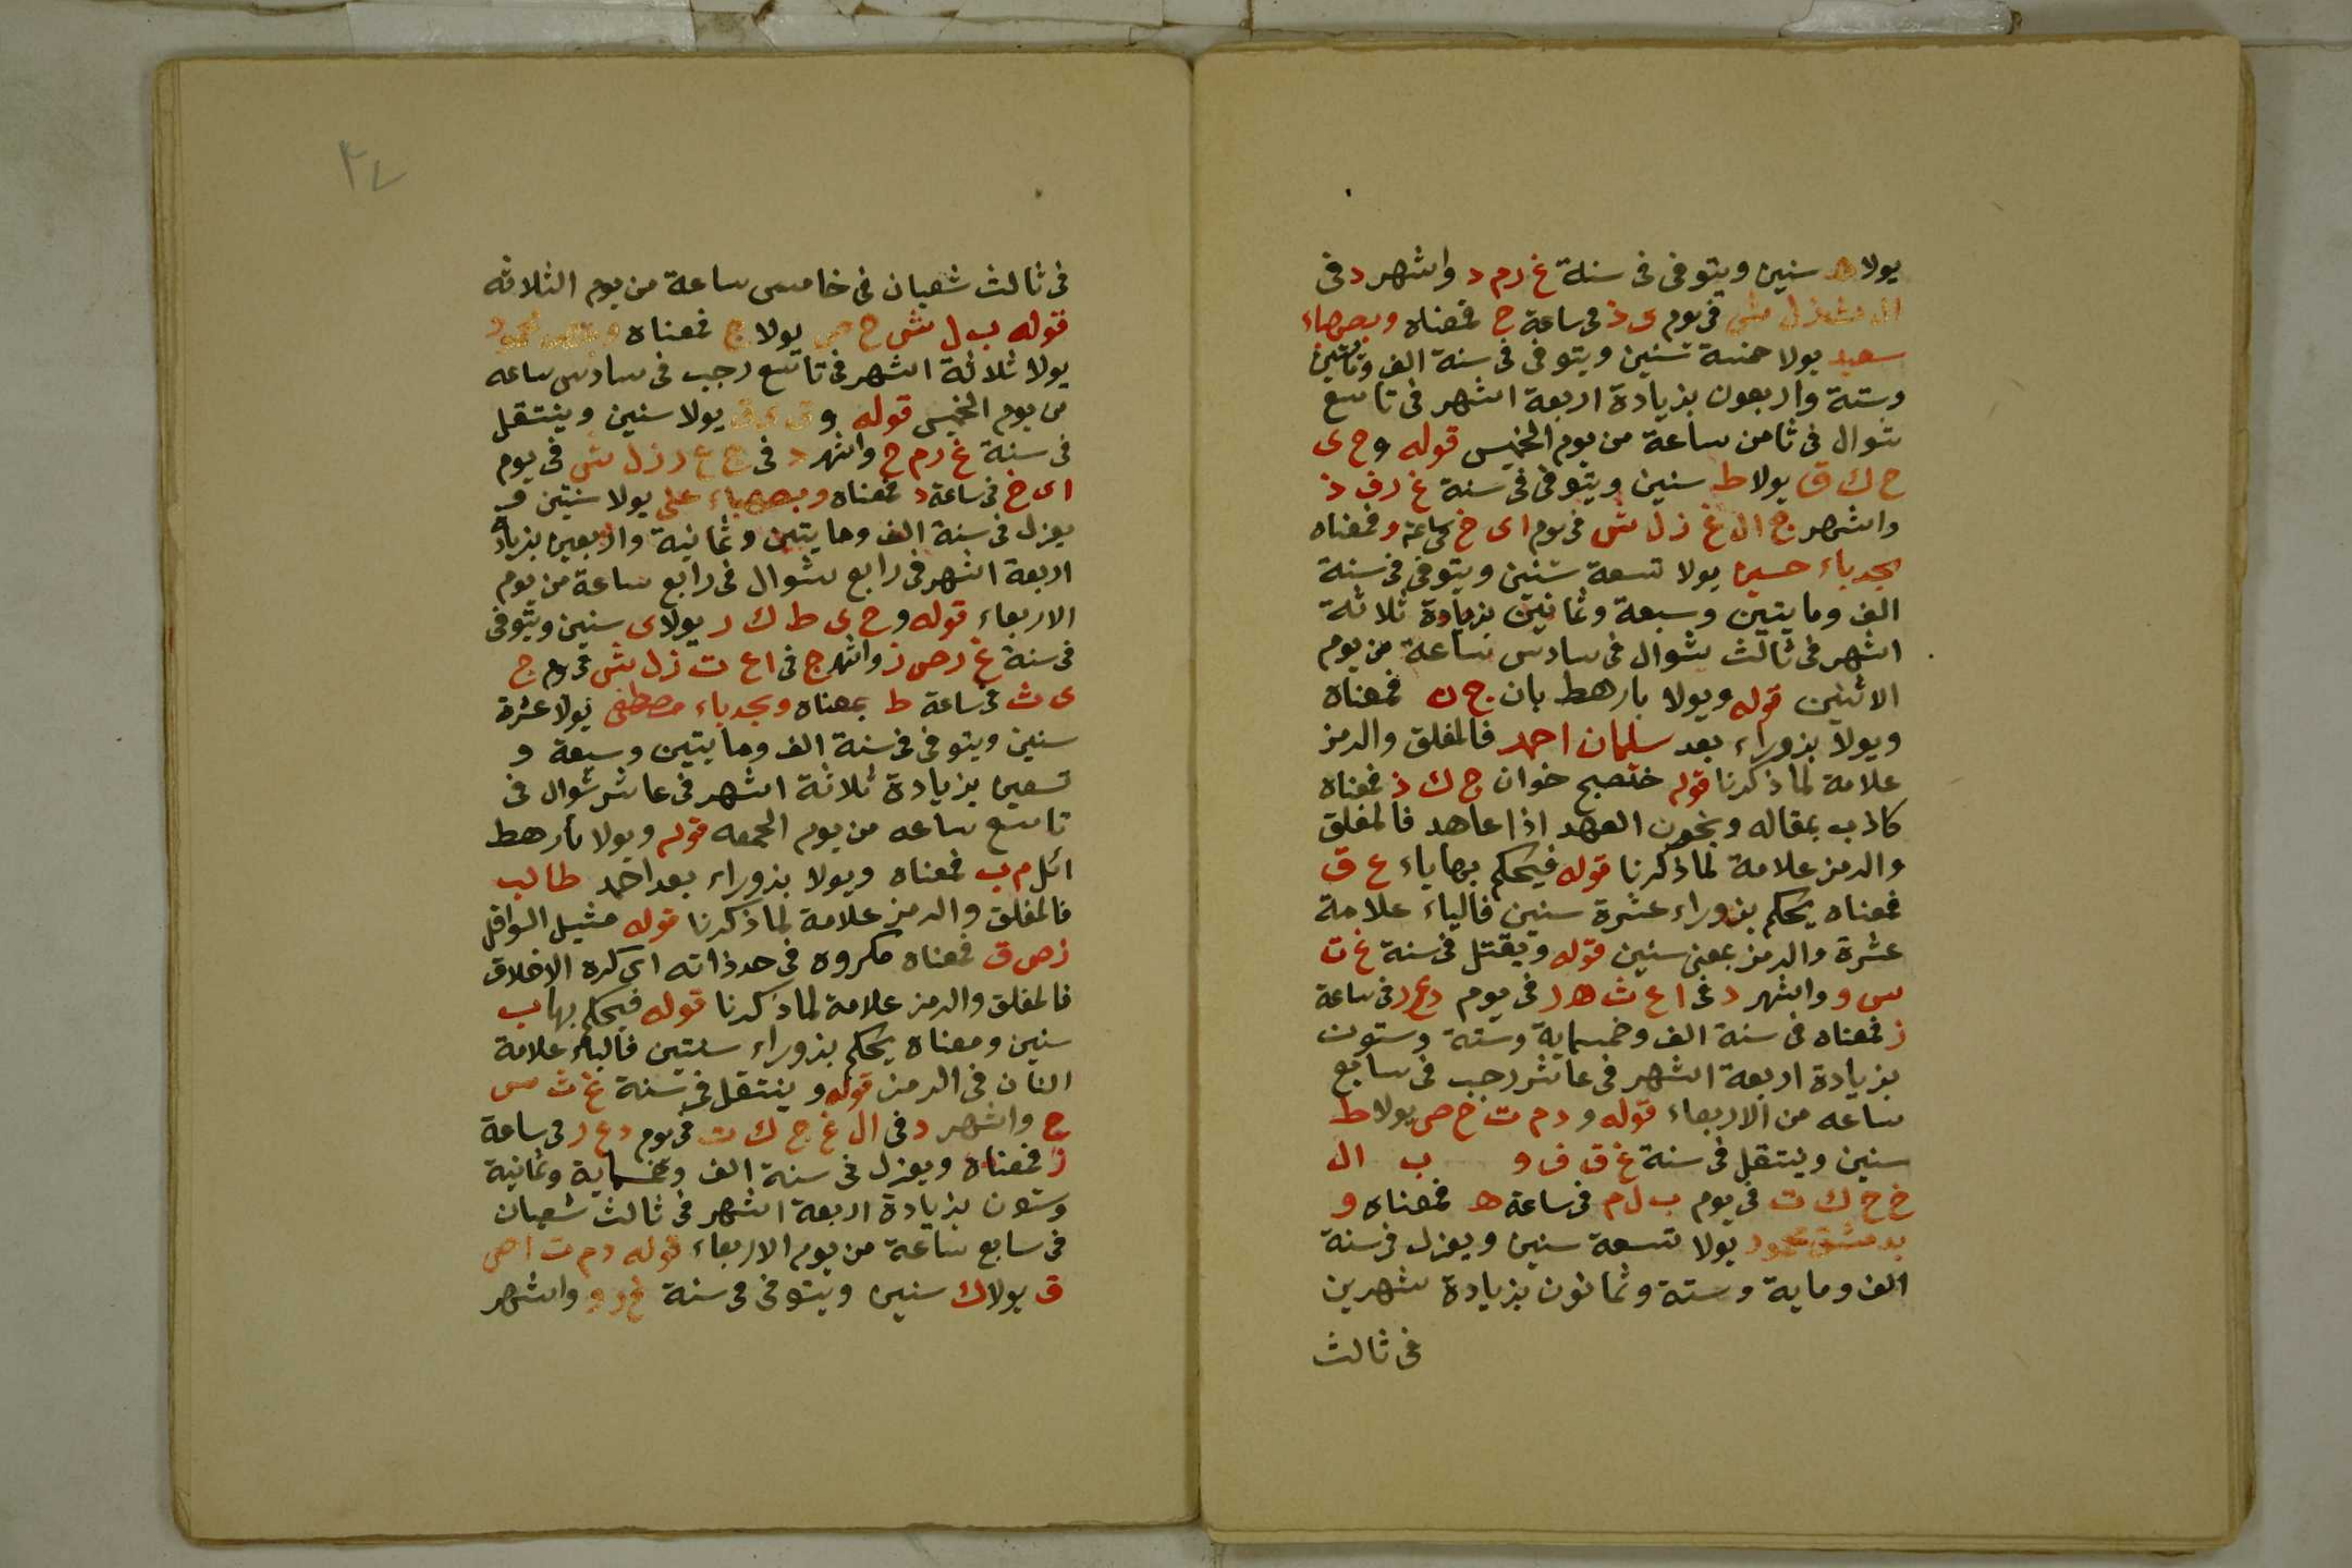 يولا ه سنين ويتوفى فى سنة غ ر م د واشهر د فى
فى يوم ى ذ فى ساعة ح فمعناه وبصهباء
سعيد يولا خمسة سنين ويتوفى فى سنة الف ومأتين
وستة واربعون بزيادة اربعة اشهر فى تاسع
شوال فى ثامن ساعة من يوم الخميس قوله وح ى
ح ك ق يولا ط سنين ويتوفى فى سنة غ ر ف ذ
واشهر ج ال غ ز ل ش فى يوم اى خ بساعة و فمعناه
بجدباء حسين يولا تسعة سنين ويتوفى فى سنة
الف ومايتين وسبعة وثمانين بزيادة ثلاثة
اشهر فى ثالث شوال فى سادس ساعة من يوم
الاثنين قوله ويولا بارهط بان ج ن فمعناه
ويولا بزوراء بعد سليمان احمد فالمغلق والرمز
علامة لما ذكرنا قوله ختصبح خوان ج ك ذ فمعناه
كاذب بمقاله ويخون العهد اذا عاهد فالمغلق
والرمز علامة لما ذكرنا قوله فيحكم بها ياء ع ق
فمعناه يحكم بزوراء عشرة سنين فالياء علامة
عشرة والرمز بمعنى سنين قوله ويقتل فى سنة غ ث
س و واشهر د فى ا ع ث ه ر فى يوم د ع ر فى ساعة
ز فمعناه فى سنة الف وخمسماية وستة وستون
بزيادة اربعة اشهر فى عاشر رجب فى سابع
ساعه من الاربعاء قوله و د م ت خ ص يولا ط
سنين وينتقل فى سنة غ ق ف و ب ال
خ ح ك ت فى يوم ب ل م فى ساعة ه فمعناه و
بدمشق محمود يولا تسعة سنين ويعزل فى سنة
الف وماية وستة وثمانون بزيادة شهرين
فى ثالث
٣٤
فى ثالث شعبان فى خامس ساعة من يوم الثلاثه
قوله ب ل ش ح ص يولا ج فمعناه محمود
يولا ثلاثة اشهر فى تاسع رجب فى سادس ساعه
من يوم الخميس قوله يولا سنين وينتقل
فى سنة غ ر م ح واشهر د فى ر ز ل ش فى يوم
اى خ فى ساعة د فمعناه وبصهباء على يولا سنتين و
يعزل فى سنة الف ومايتين وثمانية واربعين بزيادة
اربعة اشهر فى رابع شوال فى رابع ساعة من يوم
الاربعاء قوله وح ى ط ك ر يولا ى سنين ويتوفى
فى سنة غ ر ص ز واشهر ج فى ا ع ت ز ل ش فى يوم ج
ى ث فى ساعة ط بمعناه وبجدباء مصطفى يولا عشرة
سنين ويتوفى فى سنة الف ومايتين وسبعة و
تسعين بزيادة ثلاثة اشهر فى عاشر شوال فى
تاسع ساعه من يوم الجمعه قوله ويولا بارهط
ائل م ب فمعناه ويولا بزوراء بعد احمد طالب
فالمغلق والرمز علامة لما ذكرنا قوله مثيل الواقل
ز ص ق فمعناه مكروه فى حد ذاته اى كره الاخلاق
فالمغلق والرمز علامة لما ذكرنا قوله فيحكم بها ب
سنين ومعناه يحكم بزوراء سنتين فالباء علامة
اثنان فى الرمز قوله وينتقل فى سنة غ ث س
ح واشهر د فى ال غ ح ك ت فى يوم د ع ر فى ساعة
ز فمعناه ويعزل فى سنة الف وخمسماية وثمانية
وستون بزيادة اربعة اشهر فى ثالث شعبان
فى سابع ساعة من يوم الاربعاء قوله د م ت ا ص
ق يولا ك سنين ويتوفى فى سنة غ ر و واشهر